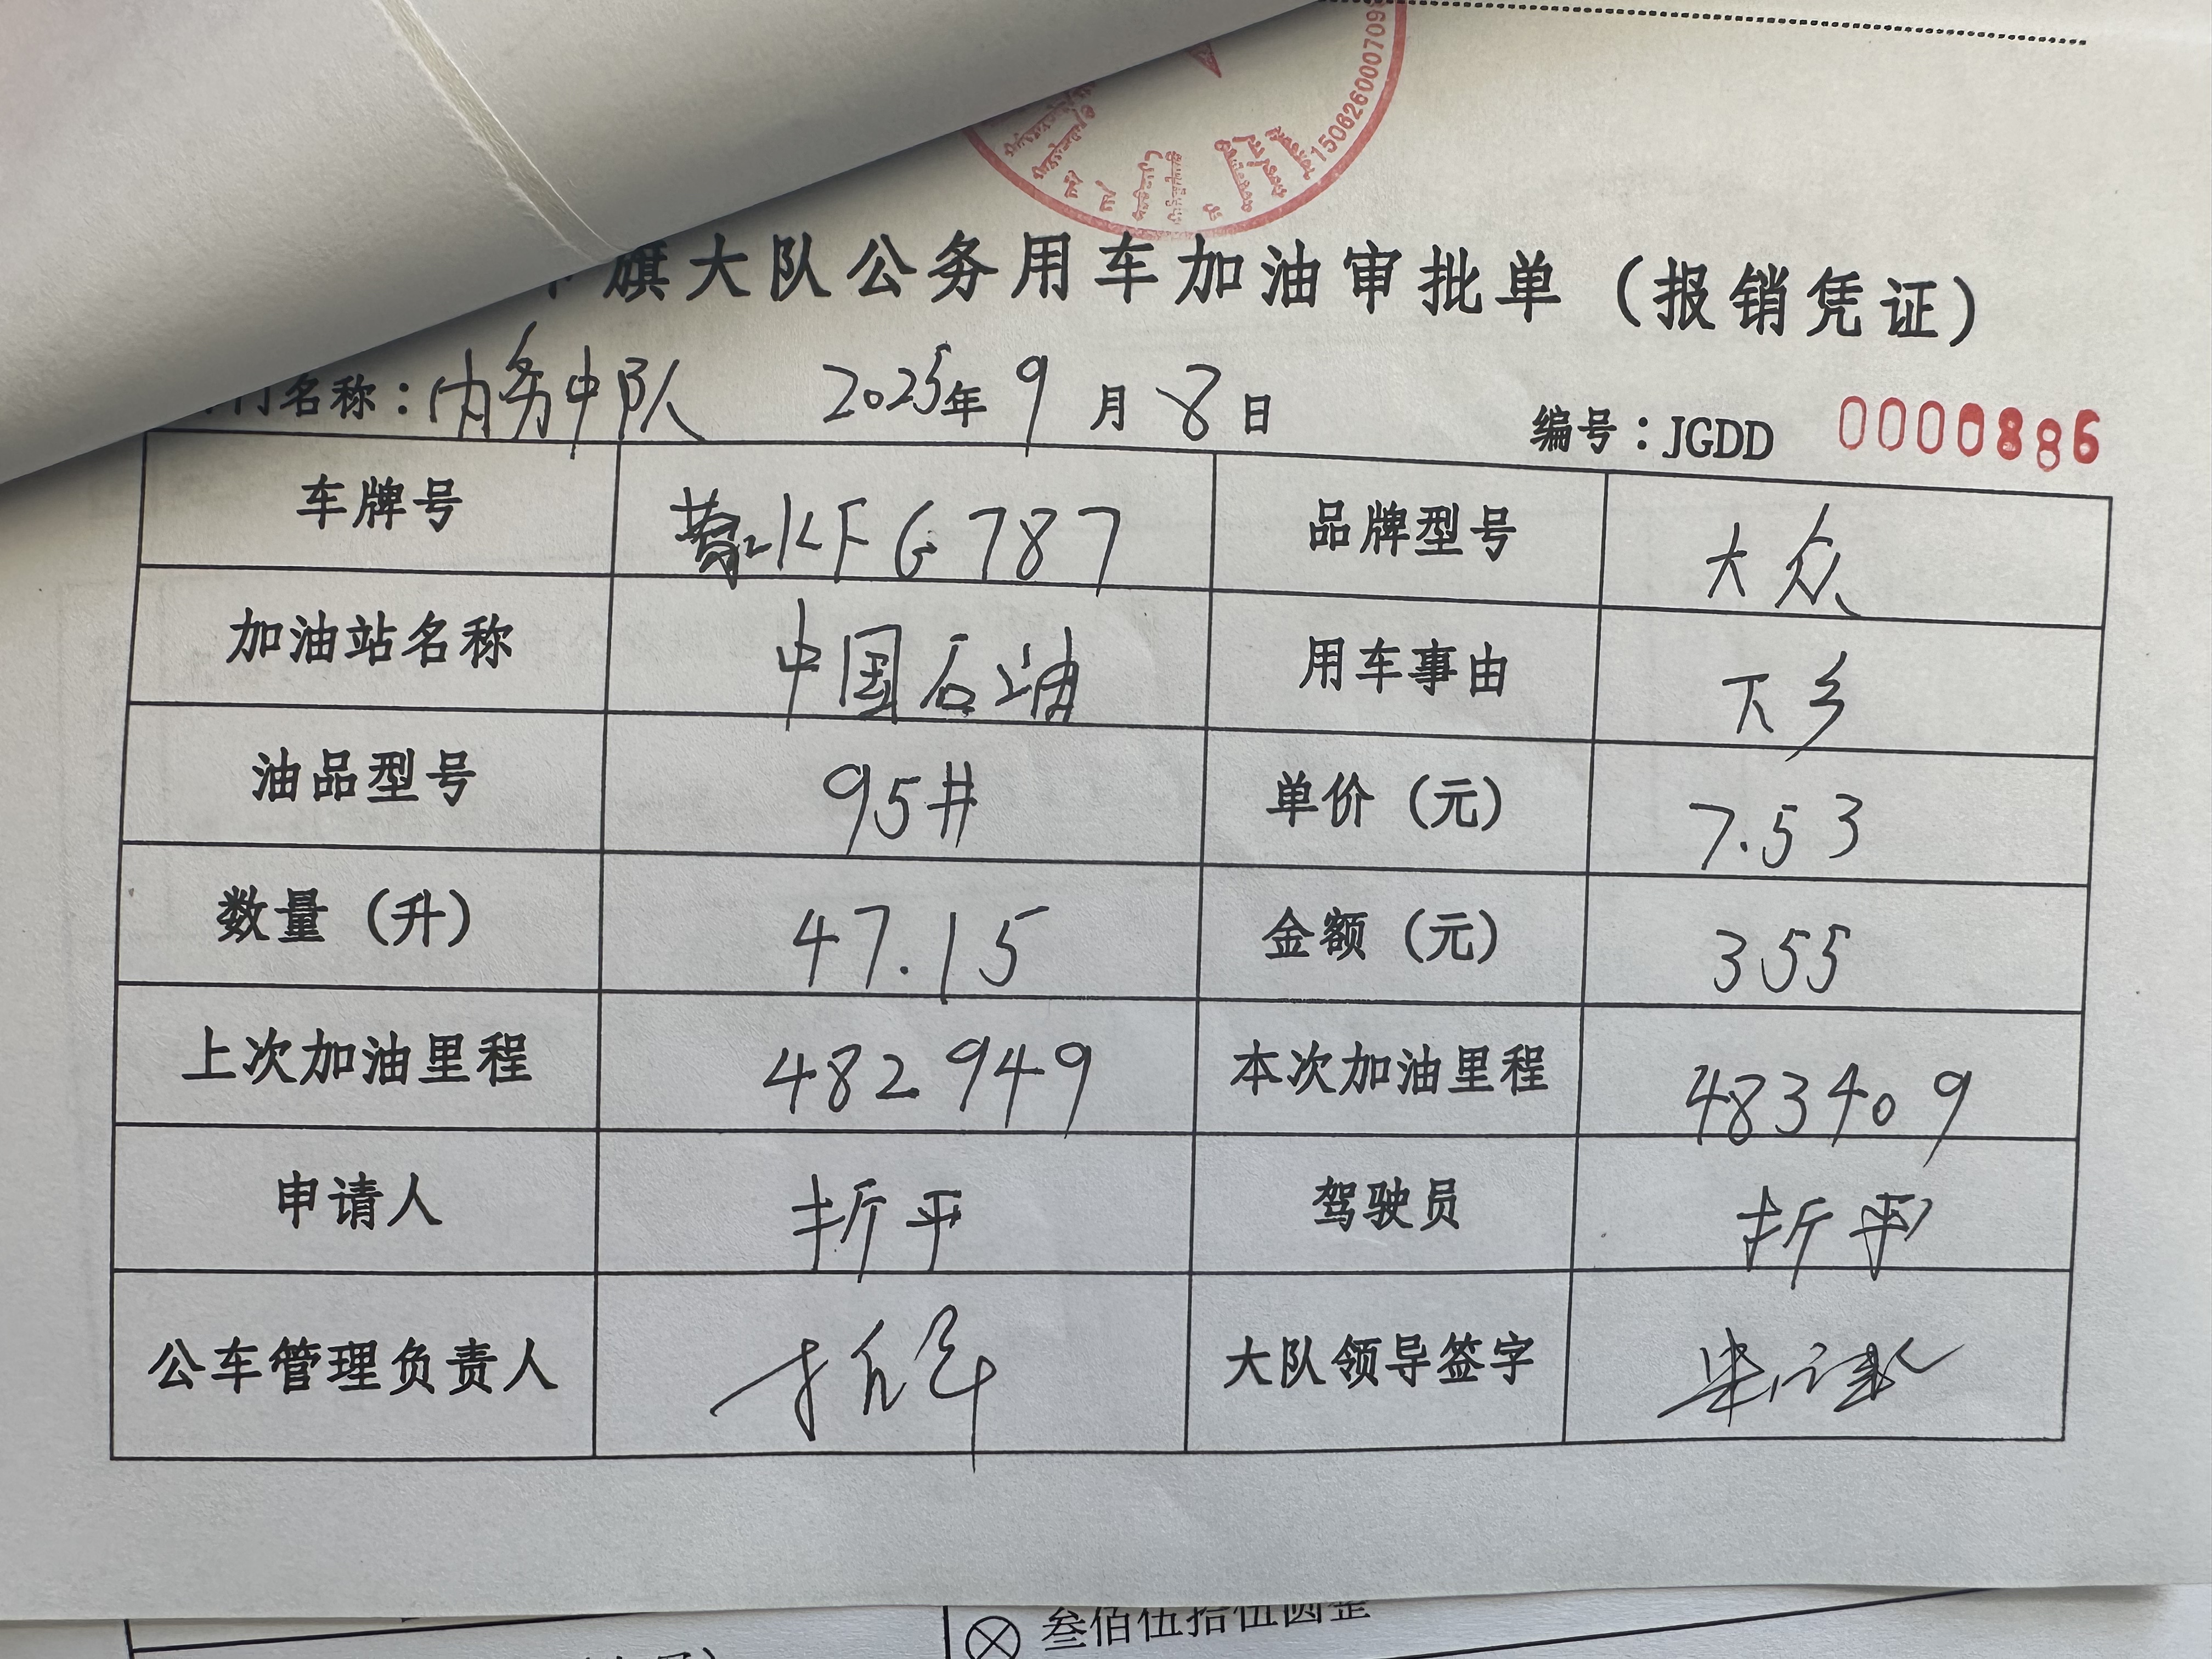 1506260007098
旗大队公务用车加油审批单（报销凭证）
门名称：内务中队 2025年9月8日 编号：JGDD 0000886
车牌号 蒙KFG787 品牌型号 大众
加油站名称 中国石油 用车事由 下乡
油品型号 95# 单价（元） 7.53
数量（升） 47.15 金额（元） 355
上次加油里程 482949 本次加油里程 483409
申请人 折平 驾驶员 折平
公车管理负责人 大队领导签字
叁佰伍拾伍圆整